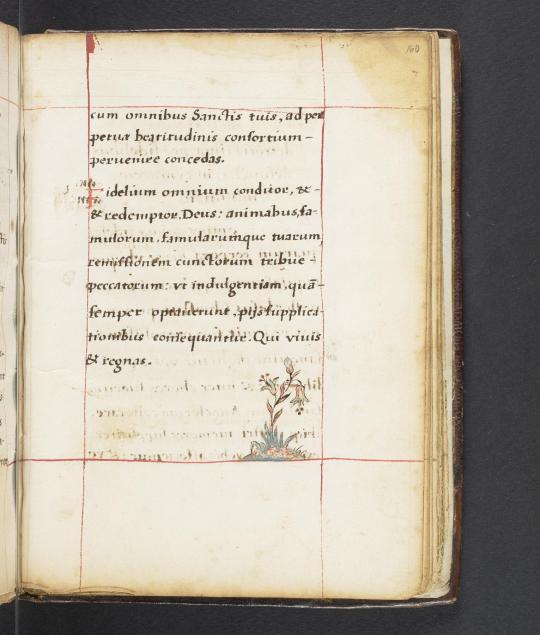 160
cum omnibus Sanctis tuis, ad per
petuæ beatitudinis consortium -
peruenire concedas.
Fidelium omnium conditor, & -
& redemptor, Deus: animabus, fa-
mulorum, famularumque tuarum,
remissionem cunctorum tribue -
peccatorum: vt indulgentiam, quã-
semper optauerunt, pijs supplica-
tionibus consequantur. Qui viuis
& regnas.